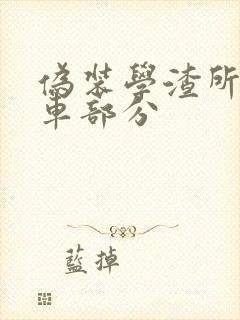 偽裝學渣所
車部分
藍掉